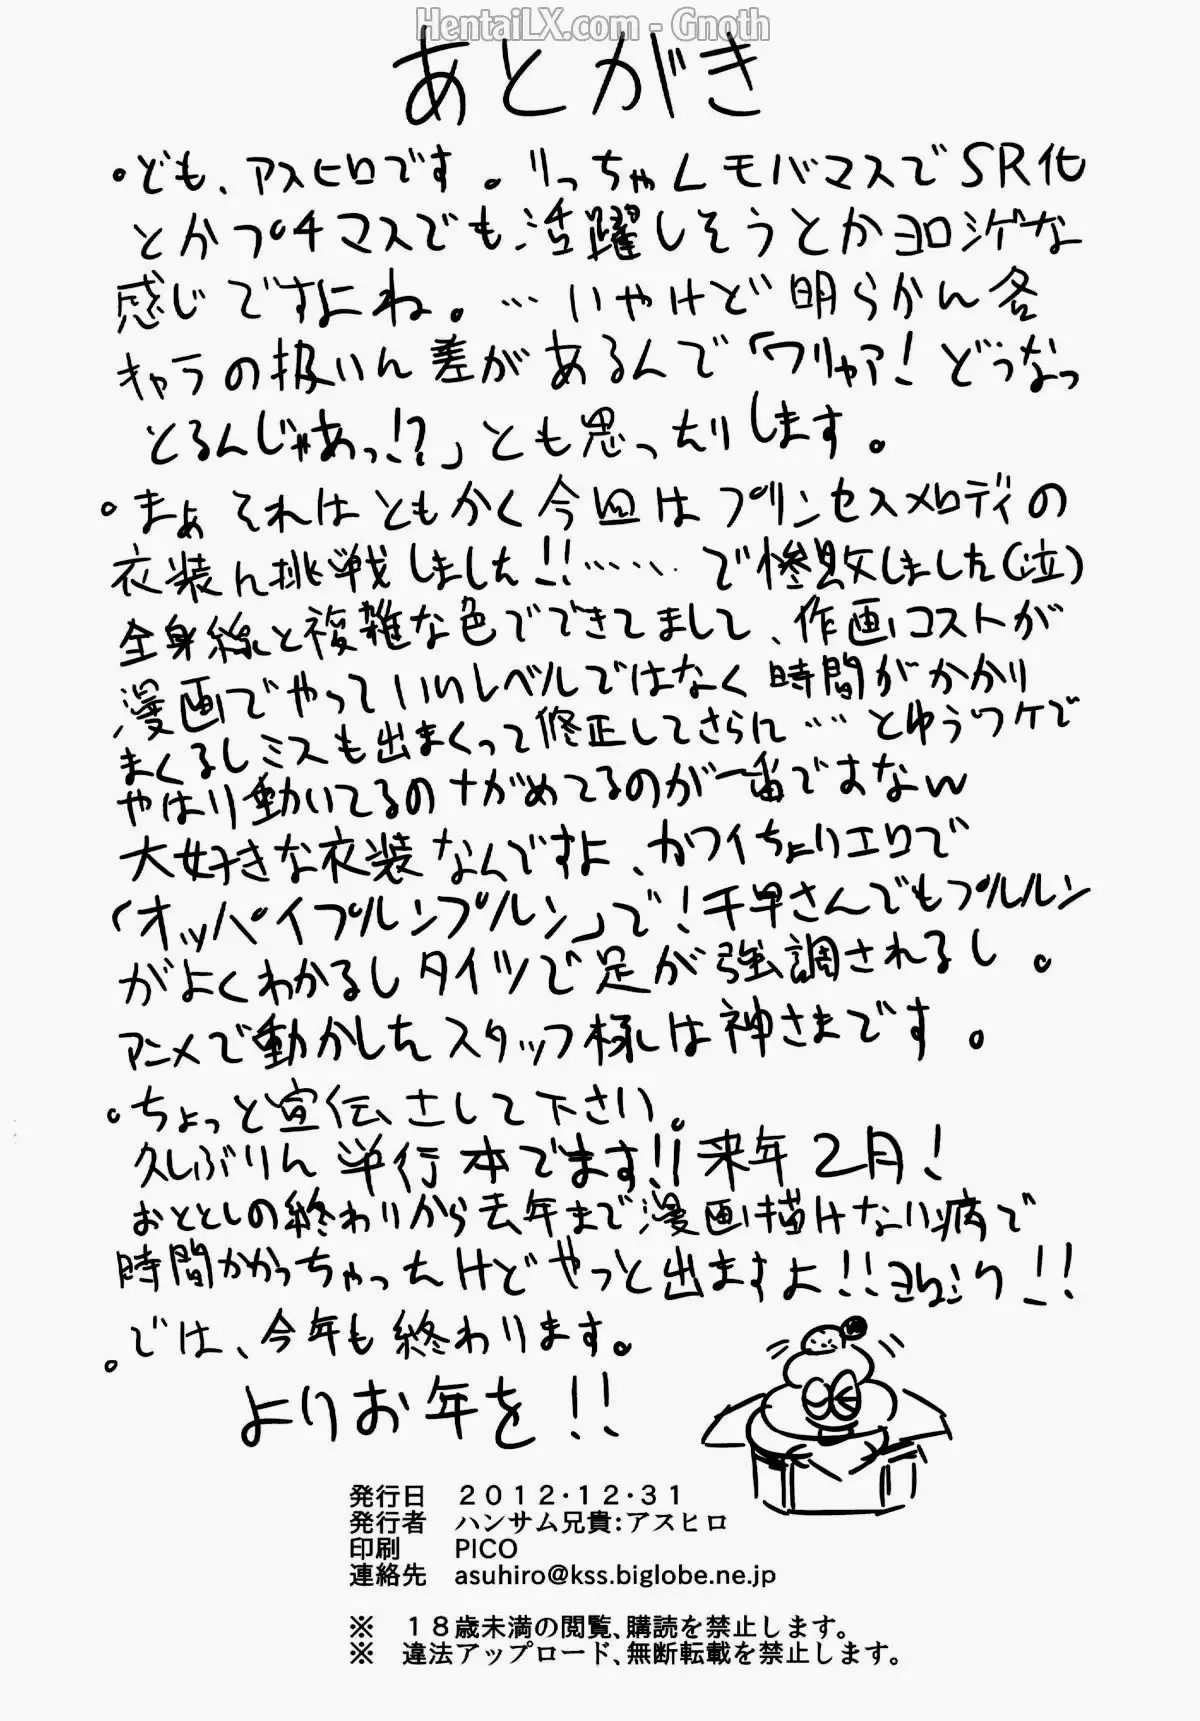 HentaiLX.com - Gnoth
あとがき
・ども、アスヒロです。りっちゃんモバマスでSR化
とかプチマスでも活躍しそうとかヨロシゲな
感じですよね。…いやけど明らかん各
キャラの扱いん差があるんで「ワリャア!どうなっ
とるんじゃあっ!?」とも思ったりします。
・まぁそれはともかく今回はプリンセスメロディの
衣装ん挑戦しました!!……で惨敗しました(泣)
全身線と複雑な色でできてまして、作画コストが
漫画でやっていいレベルではなく時間がかかり
まくるしミスも出まくって修正してさらに……とゆうワケで
やはり動いてるのナガめてるのが一番ですなw
大好きな衣装なんですよ、カワイちょりエロで
「オッパイプルンプルン」で!千早さんでもプルルン
がよくわかるしタイツで足が強調されるし。
アニメで動かしたスタッフ様は神さまです。
・ちょっと宣伝さして下さい。
久しぶりん単行本でます!!来年2月!
おととしの終わりから去年まで漫画描けない病で
時間かかっちゃったけどやっと出ますよ!!ヨロシク!!
・では、今年も終わります。
よりお年を!!
発行日 2012・12・31
発行者 ハンサム兄貴:アスヒロ
印刷 PICO
連絡先 asuhiro@kss.biglobe.ne.jp
※ 18歳未満の閲覧、購読を禁止します。
※ 違法アップロード、無断転載を禁止します。